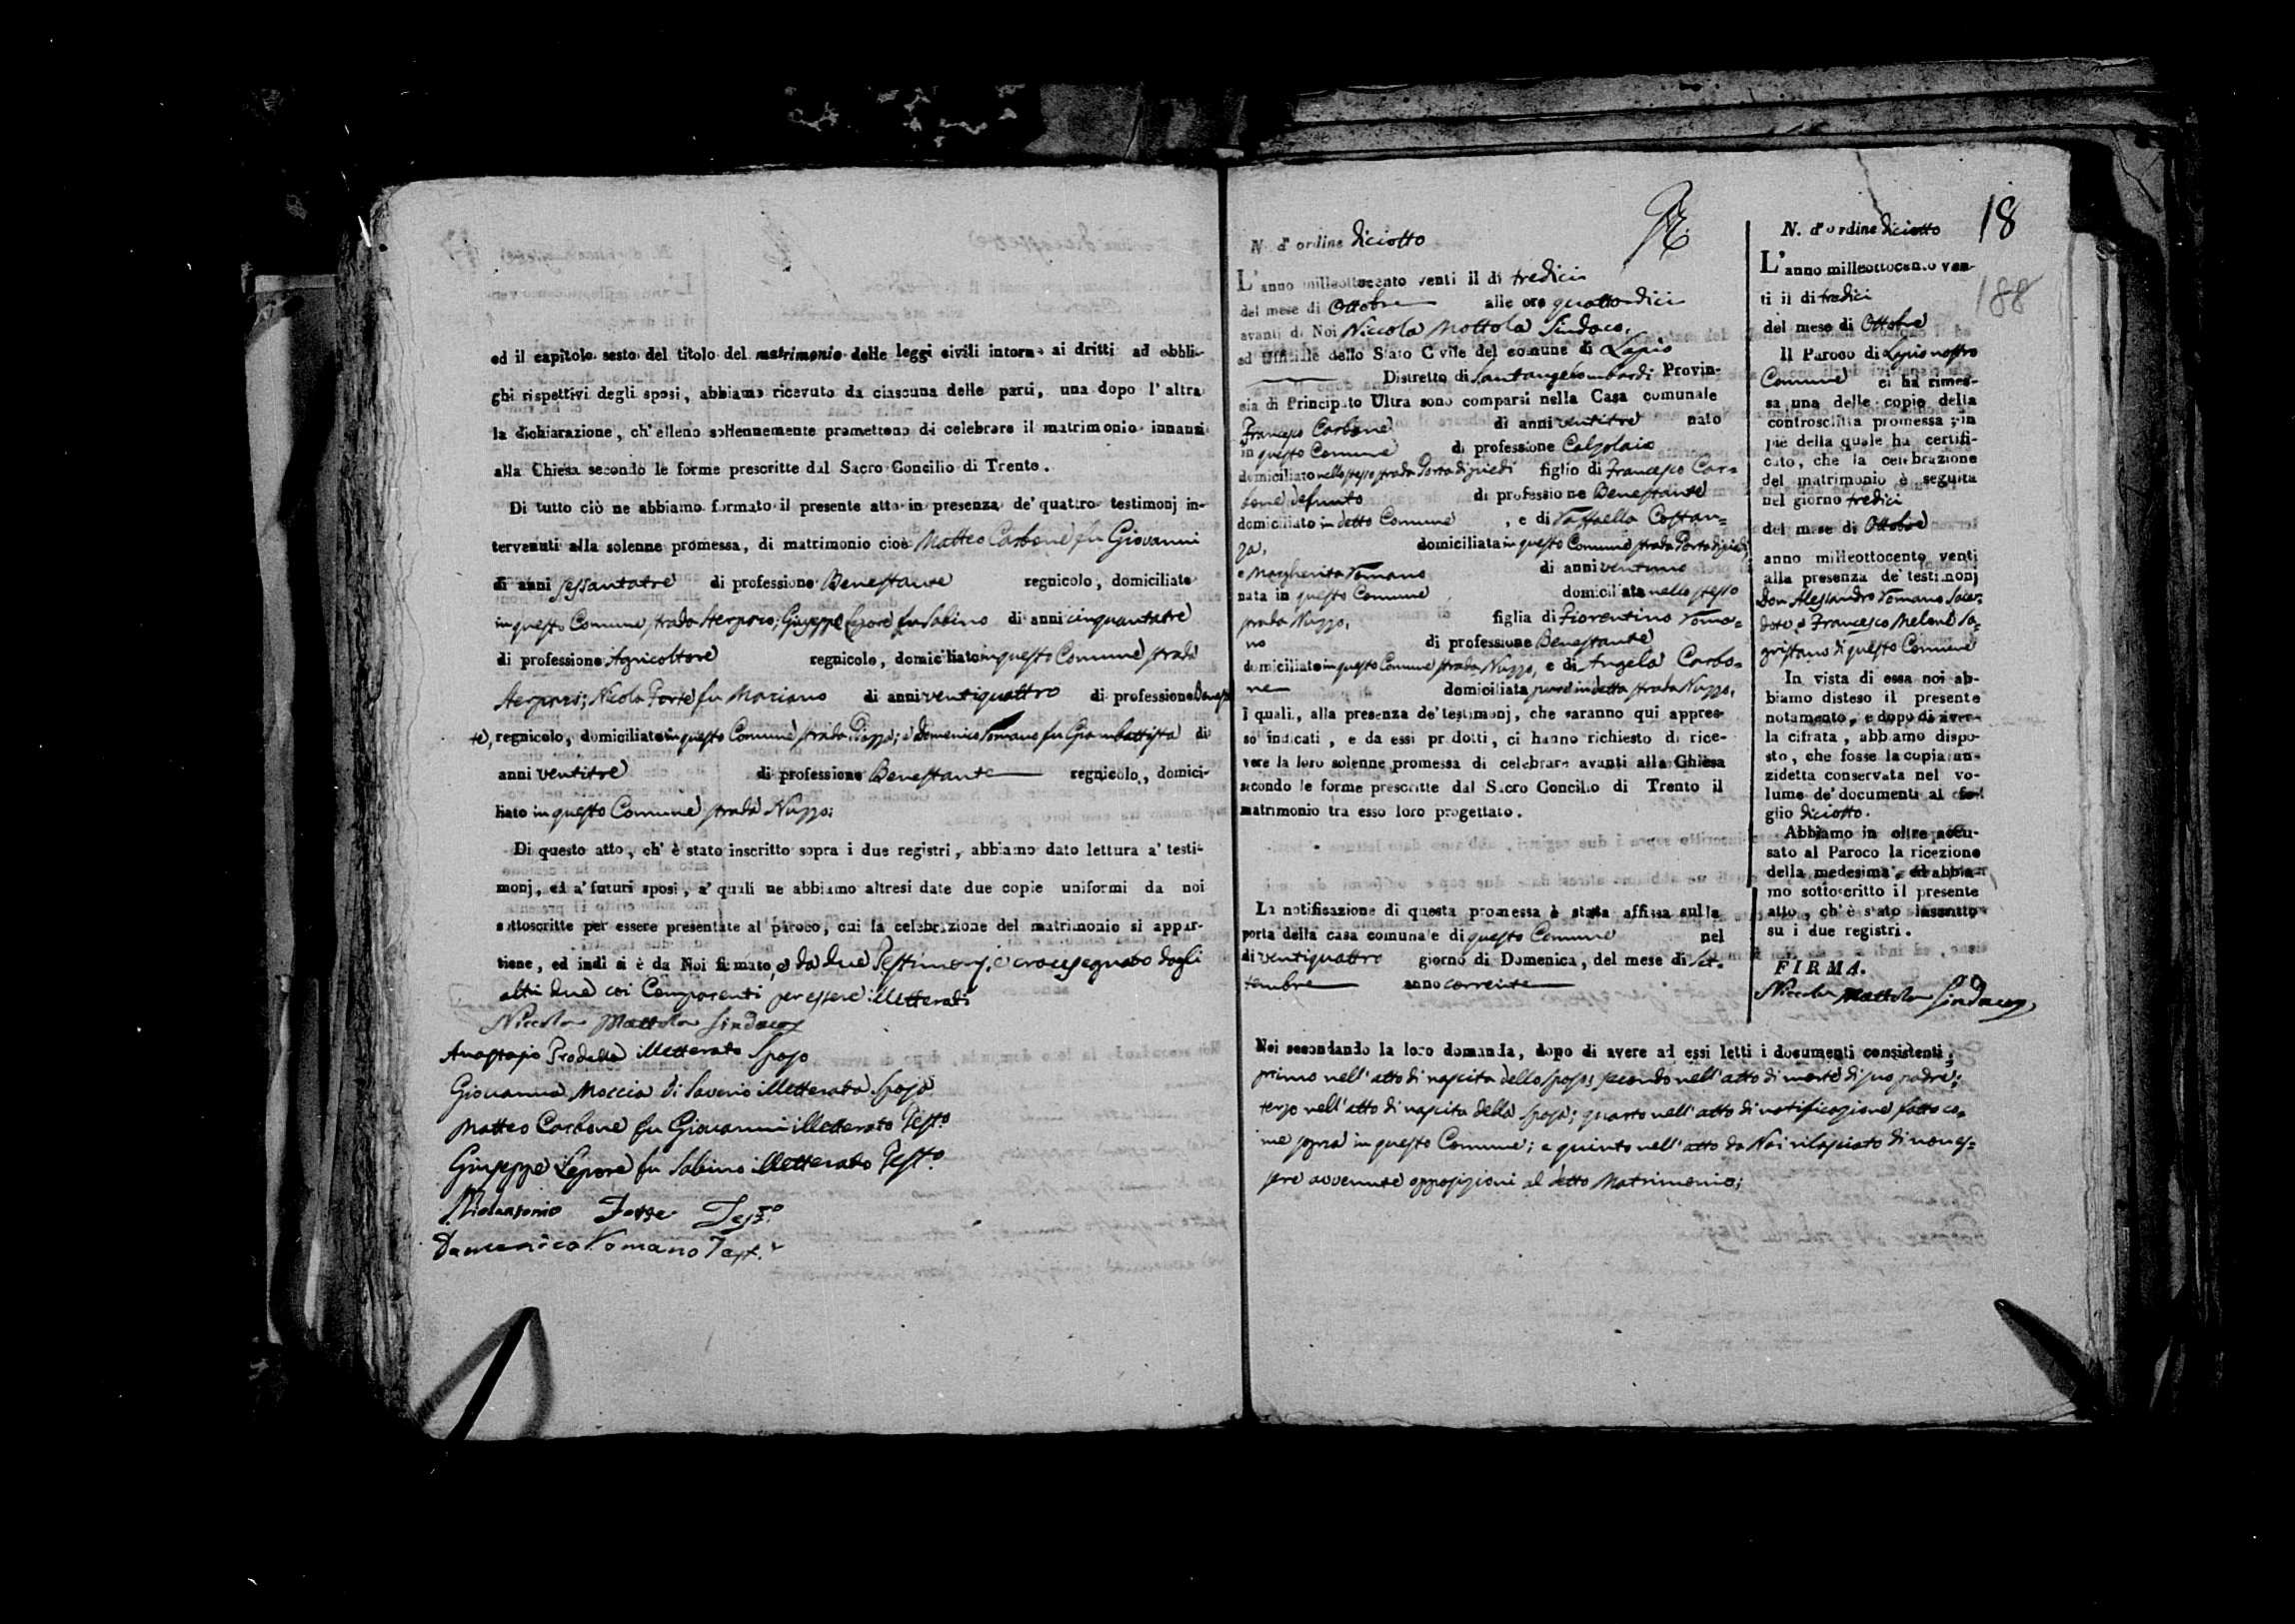 ed il capitolo sesto del titolo del matrimonio delle leggi civili intorno ai dritti ad obbli-
ghi rispettivi degli sposi, abbiamo ricevuto da ciascuna delle parti, una dopo l'altra
la dichiarazione, ch'elleno sollennemente promettono di celebrare il matrimonio innanzi
alla Chiesa secondo le forme prescritte dal Sacro Concilio di Trento.
Di tutto ciò ne abbiamo formato il presente atto in presenza de' quattro testimonj in-
tervenuti alla solenne promessa, di matrimonio cioè Matteo Carbone fu Giovanni
di anni sessantatre di professione Benestante regnicolo, domiciliato
in questo Comune strada Giuseppe Lepore fu Sabino di anni cinquantatre
di professione Agricoltore regnicolo, domiciliato in questo Comune strada
Nicola Forte fu Mariano di anni ventiquattro di professione Benestan
te, regnicolo, domiciliato in questo Comune strada Piazza; e Domenico Romano fu Giambattista di
anni ventitre di professione Benestante regnicolo, domici-
liato in questo Comune strada Nuzzo;
Di questo atto, ch' è stato inscritto sopra i due registri, abbiamo dato lettura a' testi-
monj, ed a' futuri sposi, a' quali ne abbiamo altresi date due copie uniformi da noi
sottoscritte per essere presentate al paroco, cui la celebrazione del matrimonio si appar-
tiene, ed indi si è da Noi firmato, e da due Testimonj, e crocesegnato dagli
altri due coi Comparenti per essere illetterati
Niccola Mottola Sindaco
Anastasio Prodella illetterato Sposo
Giovanna Moccia di Saverio illetterata Sposa
Matteo Carbone fu Giovanni illetterato Testo.
Giuseppe Lepore fu Sabino illetterato Testo.
Nicolantonio Forte Testo.
Domenico Romano Test.
N. d'ordine diciotto
L'anno milleottocento venti il di tredici
del mese di Ottobre alle ore quattordici
avanti di Noi Niccola Mottola Sindaco,
ed Uffiziale dello Stato Civile del comune di Lapio
Distretto di Santangelombardi Provin-
cia di Principato Ultra sono comparsi nella Casa comunale
Francesco Carbone di anni ventitre nato
in questo Comune di professione Calzolaio
domiciliato nello stesso strada Porta di piedi figlio di Francesco Car=
bone defunto di professione Benestante
domiciliato in detto Comune, e di Raffaella Costan=
za, domiciliata in questo Comune strada Porta di piedi,
e Margherita Romano di anni ventuno
nata in questo Comune domiciliata nello stesso
strada Nuzzo, figlia di Fiorentino Roma=
no di professione Benestante
domiciliato in questo Comune strada Nuzzo, e di Angela Carbo=
ne domiciliata pure in detta strada Nuzzo,
I quali, alla presenza de' testimonj, che saranno qui appres-
so indicati, e da essi prodotti, ci hanno richiesto di rice-
vere la loro solenne promessa di celebrare avanti alla Chiesa
secondo le forme prescritte dal Sacro Concilio di Trento il
matrimonio tra esso loro progettato.
La notificazione di questa promessa è stata affissa sulla
porta della casa comunale di questo Comune nel
di ventiquattro giorno di Domenica, del mese di Set=
tembre anno corrente
Noi secondando la loro domanda, dopo di avere ad essi letti i documenti consistenti;
primo nell'atto di nascita dello sposo; secondo nell'atto di morte di suo padre;
terzo nell'atto di nascita della sposa; quarto nell'atto di notificazione fatto co=
me sopra in questo Comune; e quinto nell'atto da Noi rilasciato di non es=
sere avvenute opposizioni al detto Matrimonio;
18
188
N. d'ordine diciotto
L'anno milleottocento ven-
ti il di tredici
del mese di Ottobre
Il Paroco di Lapio nostro
Comune ci ha rimes-
sa una delle copie della
controscritta promessa; in
piè della quale ha certifi-
cato, che la celebrazione
del matrimonio è seguita
nel giorno tredici
del mese di Ottobre
anno milleottocento venti
alla presenza de' testimonj
Don Alessandro Romano Sacer=
dote, e Francesco Melone Sa=
gristano di questo Comune
In vista di essa noi ab-
biamo disteso il presente
notamento, e dopo di aver-
la cifrata, abbiamo dispo-
sto, che fosse la copia an-
zidetta conservata nel vo-
lume de' documenti al fo-
glio diciotto.
Abbiamo in oltre accu-
sato al Paroco la ricezione
della medesima, ed abbia-
mo sottoscritto il presente
atto, ch'è stato inscritto
su i due registri.
FIRMA.
Niccola Mottola Sindaco